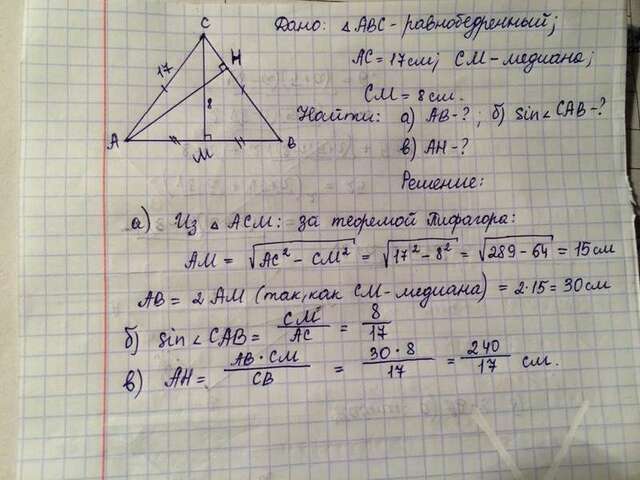 Дано: △ABC - равнобедренный;
AC = 17см; CM - медиана;
CM = 8см.
Найти: а) AB - ?; б) sin∠CAB - ?
в) AH - ?
Решение:
C
H
17
8
A
M
B
а) Из △ACM: за теоремой Пифагора:
AM = √(AC² - CM²) = √(17² - 8²) = √(289 - 64) = 15см
AB = 2AM (так, как CM - медиана) = 2·15 = 30см
б) sin∠CAB = CM/AC = 8/17
в) AH = AB·CM/CB = 30·8/17 = 240/17 см.